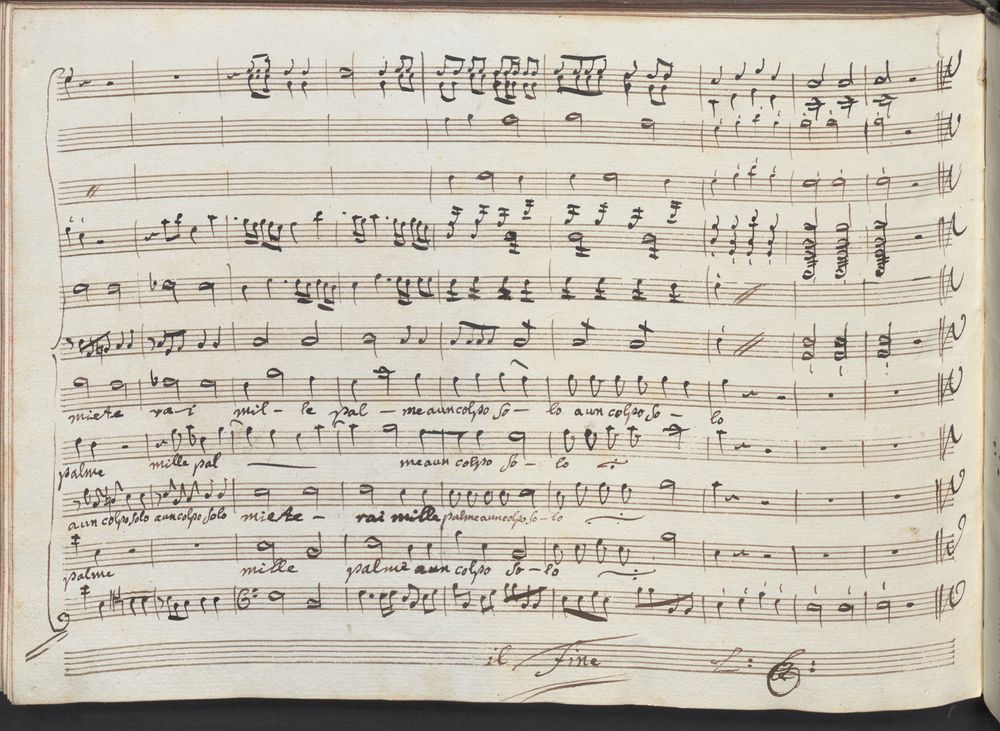 miete ra-i mil-le pal-me aun colpo so-lo aun colpo so-lo
palme mille pal me aun colpo so-lo
aun colpo solo aun colpo solo miete-rai mille palme aun colpo so-lo
palme mille palme aun colpo so-lo
il Fine